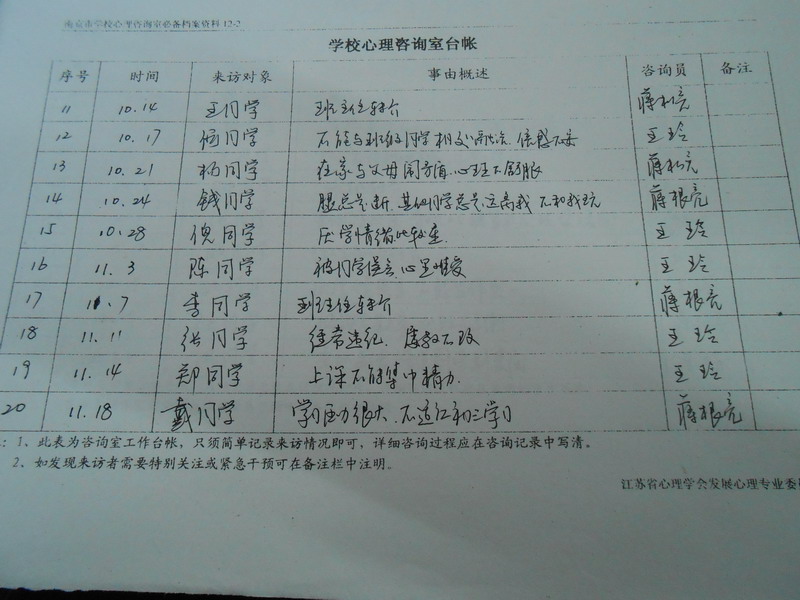 南京市学校心理咨询室必备档案资料 12-2
学校心理咨询室台帐
序号 时间 来访对象 事由概述 咨询员 备注
11 10.14 王同学 班主任转介 蒋根亮
12 10.17 同学 不能与班级同学相交 王玲
13 10.21 杨同学 在家与父母闹方面,心里不舒服 蒋根亮
14 10.24 钱同学 腿总是 其他同学总是远离我 不和我玩 蒋根亮
15 10.28 倪同学 厌学情绪比较重. 王玲
16 11.3 陈同学 被同学 心里难受 王玲
17 11.7 李同学 班主任转介 蒋根亮
18 11.11 张同学 经常违纪. 屡教不改 王玲
19 11.14 郑同学 上课不能集中精力. 王玲
20 11.18 戴同学 学习压力很大、不适应初三学习 蒋根亮
:1、此表为咨询室工作台帐,只须简单记录来访情况即可,详细咨询过程应在咨询记录中写清。
2、如发现来访者需要特别关注或紧急干预可在备注栏中注明。
江苏省心理学会发展心理专业委